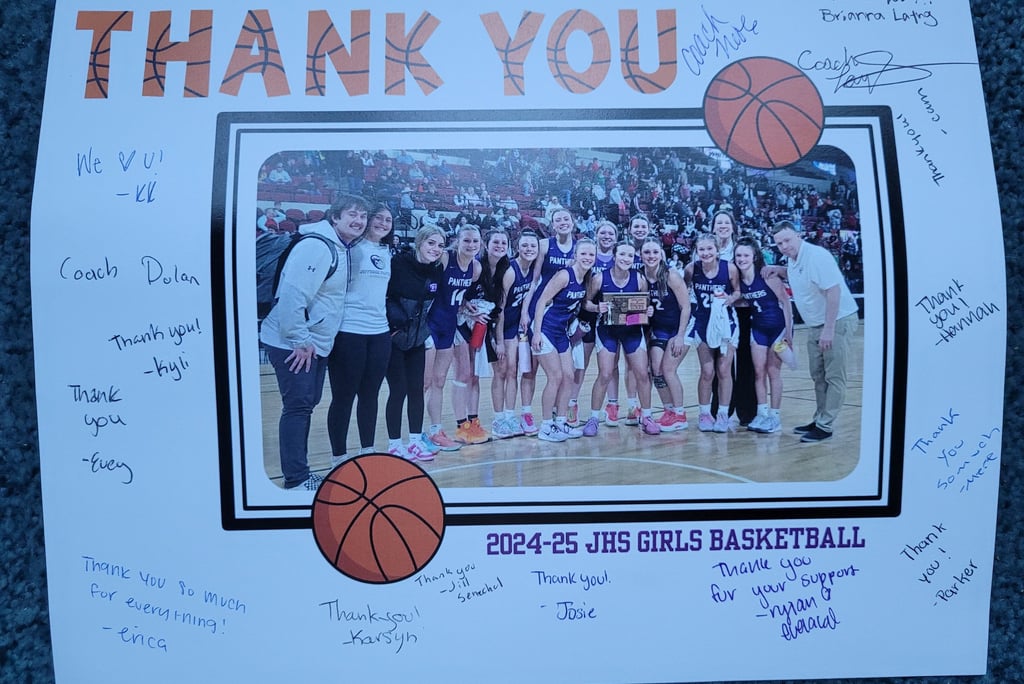 THANK YOU
Coach
Nole
Brianna
Coach
Thank you!
- cam
We ♡ U!
- KK
Coach Dolan
Thank you!
- Kyli
Thank
you
- Evey
PANTHERS
14
PANTHERS
PANTHERS
25
PANTHERS
Thank
you!
- Hannah
Thank
you
so much
Thank
you!
- Parker
2024-25 JHS GIRLS BASKETBALL
Thank you so much
for everything!
- erica
Thank you!
- Karsyn
Thank you
- Jill
Senechal
Thank you!
- Josie
Thank you
for your support